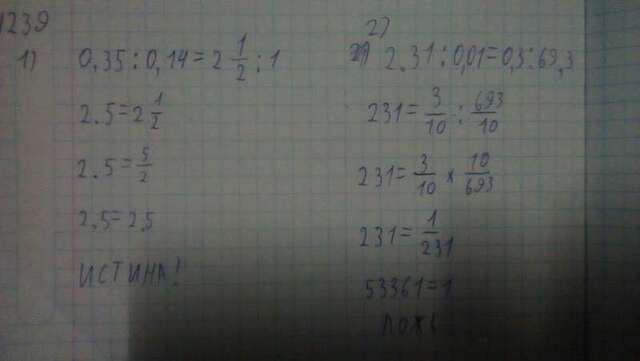 1239
1) 0,35 : 0,14 = 2 1/2 : 1
2.5 = 2 1/2
2.5 = 5/2
2,5 = 2,5
ИСТИНА!
2)
2.31 : 0,01 = 0,3 : 69,3
231 = 3/10 : 693/10
231 = 3/10 × 10/693
231 = 1/231
53361 = 1
ЛОЖЬ